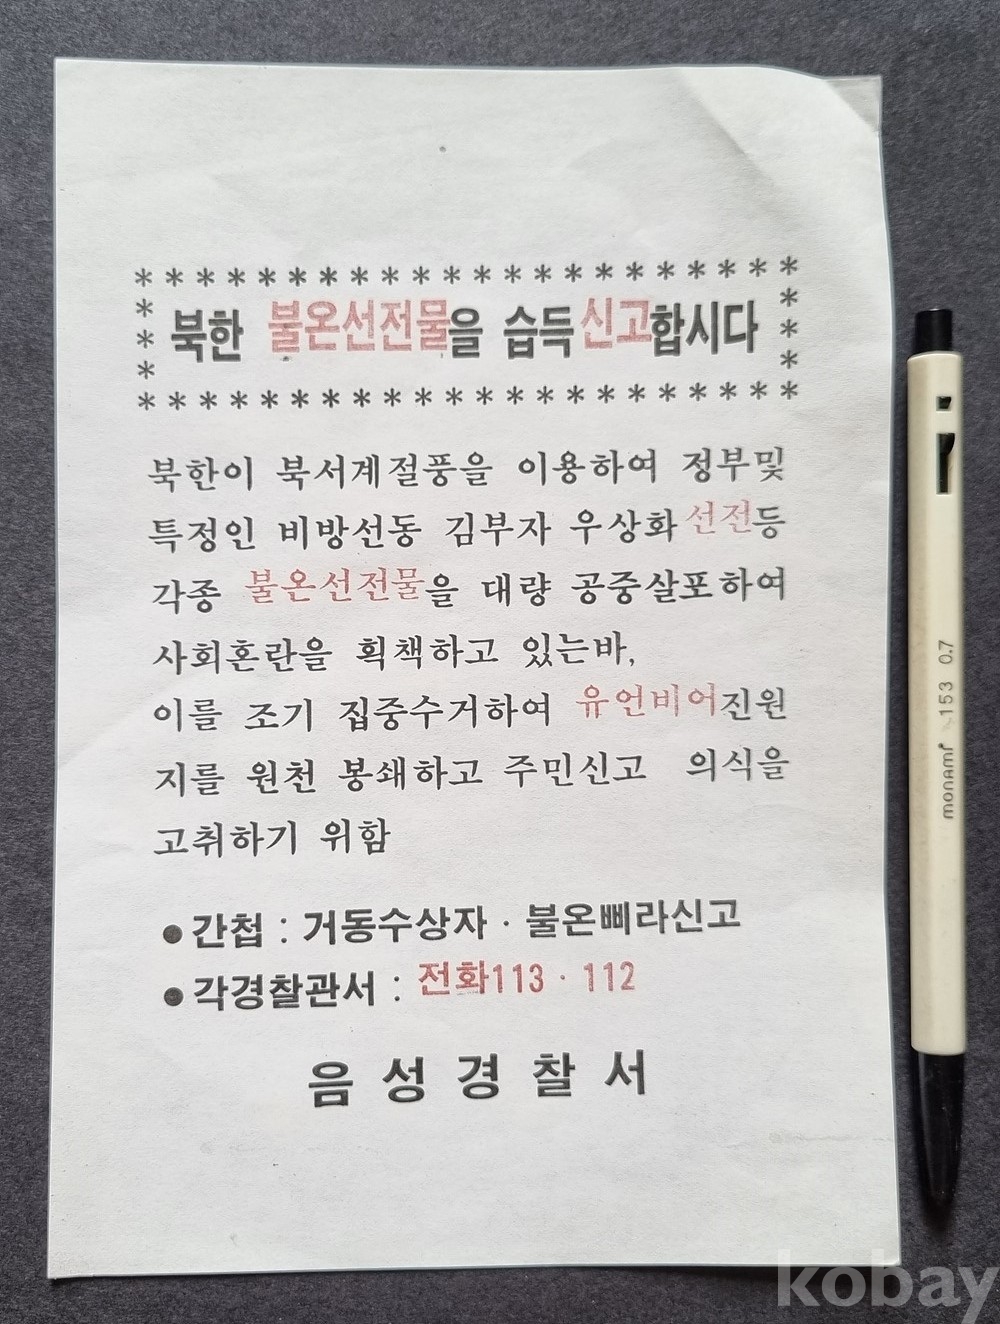 * * * * * * * * * * * * * * * * * * * * * *
* 북한 불온선전물을 습득 신고합시다 *
* * * * * * * * * * * * * * * * * * * * * *
북한이 북서계절풍을 이용하여 정부및
특정인 비방선동 김부자 우상화 선전등
각종 불온선전물을 대량 공중살포하여
사회혼란을 획책하고 있는바,
이를 조기 집중수거하여 유언비어진원
지를 원천 봉쇄하고 주민신고 의식을
고취하기 위함
●간첩 : 거동수상자 · 불온삐라신고
●각경찰관서 : 전화113 · 112
음성경찰서
monami 153 0.7
kobay